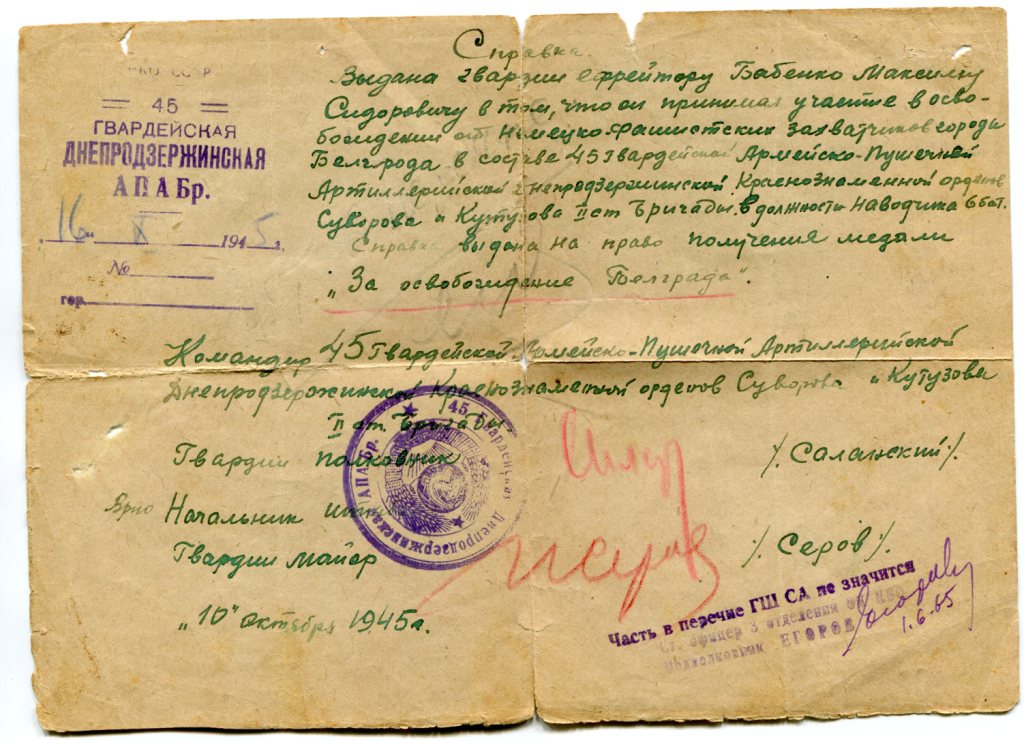 Справка.
НКО СССР
45
ГВАРДЕЙСКАЯ
ДНЕПРОДЗЕРЖИНСКАЯ
АПАБр.
„16" X 1945 г.
№
гор.
Выдана гвардии ефрейтору Бабенко Максиму
Сидоровичу в том, что он принимал участие в осво-
бождении от Немецко-Фашистских захватчиков города
Белгрода в составе 45 Гвардейской Армейско-Пушечной
Артиллерийской Днепродзержинской Краснознаменной орденов
Суворова и Кутузова II ст Бригады. в должности наводчика 6 бат.
Справка выдана на право получения медали
„За освобождение Белграда".
Командир 45 Гвардейской Армейско-Пушечной Артиллерийской
Днепродзержинской Краснознаменной орденов Суворова и Кутузова
II ст. Бригады
Гвардии полковник /. Саланский /.
Врио Начальник
Гвардии майор /. Серов /.
„10" октября 1945 г.
45 Гвардейская Днепродзержинская АПАБр.
Часть в перечне ГШ СА не значится
Ст. офицер 3 отделения
подполковник ЕГОРОВ
1.6.65